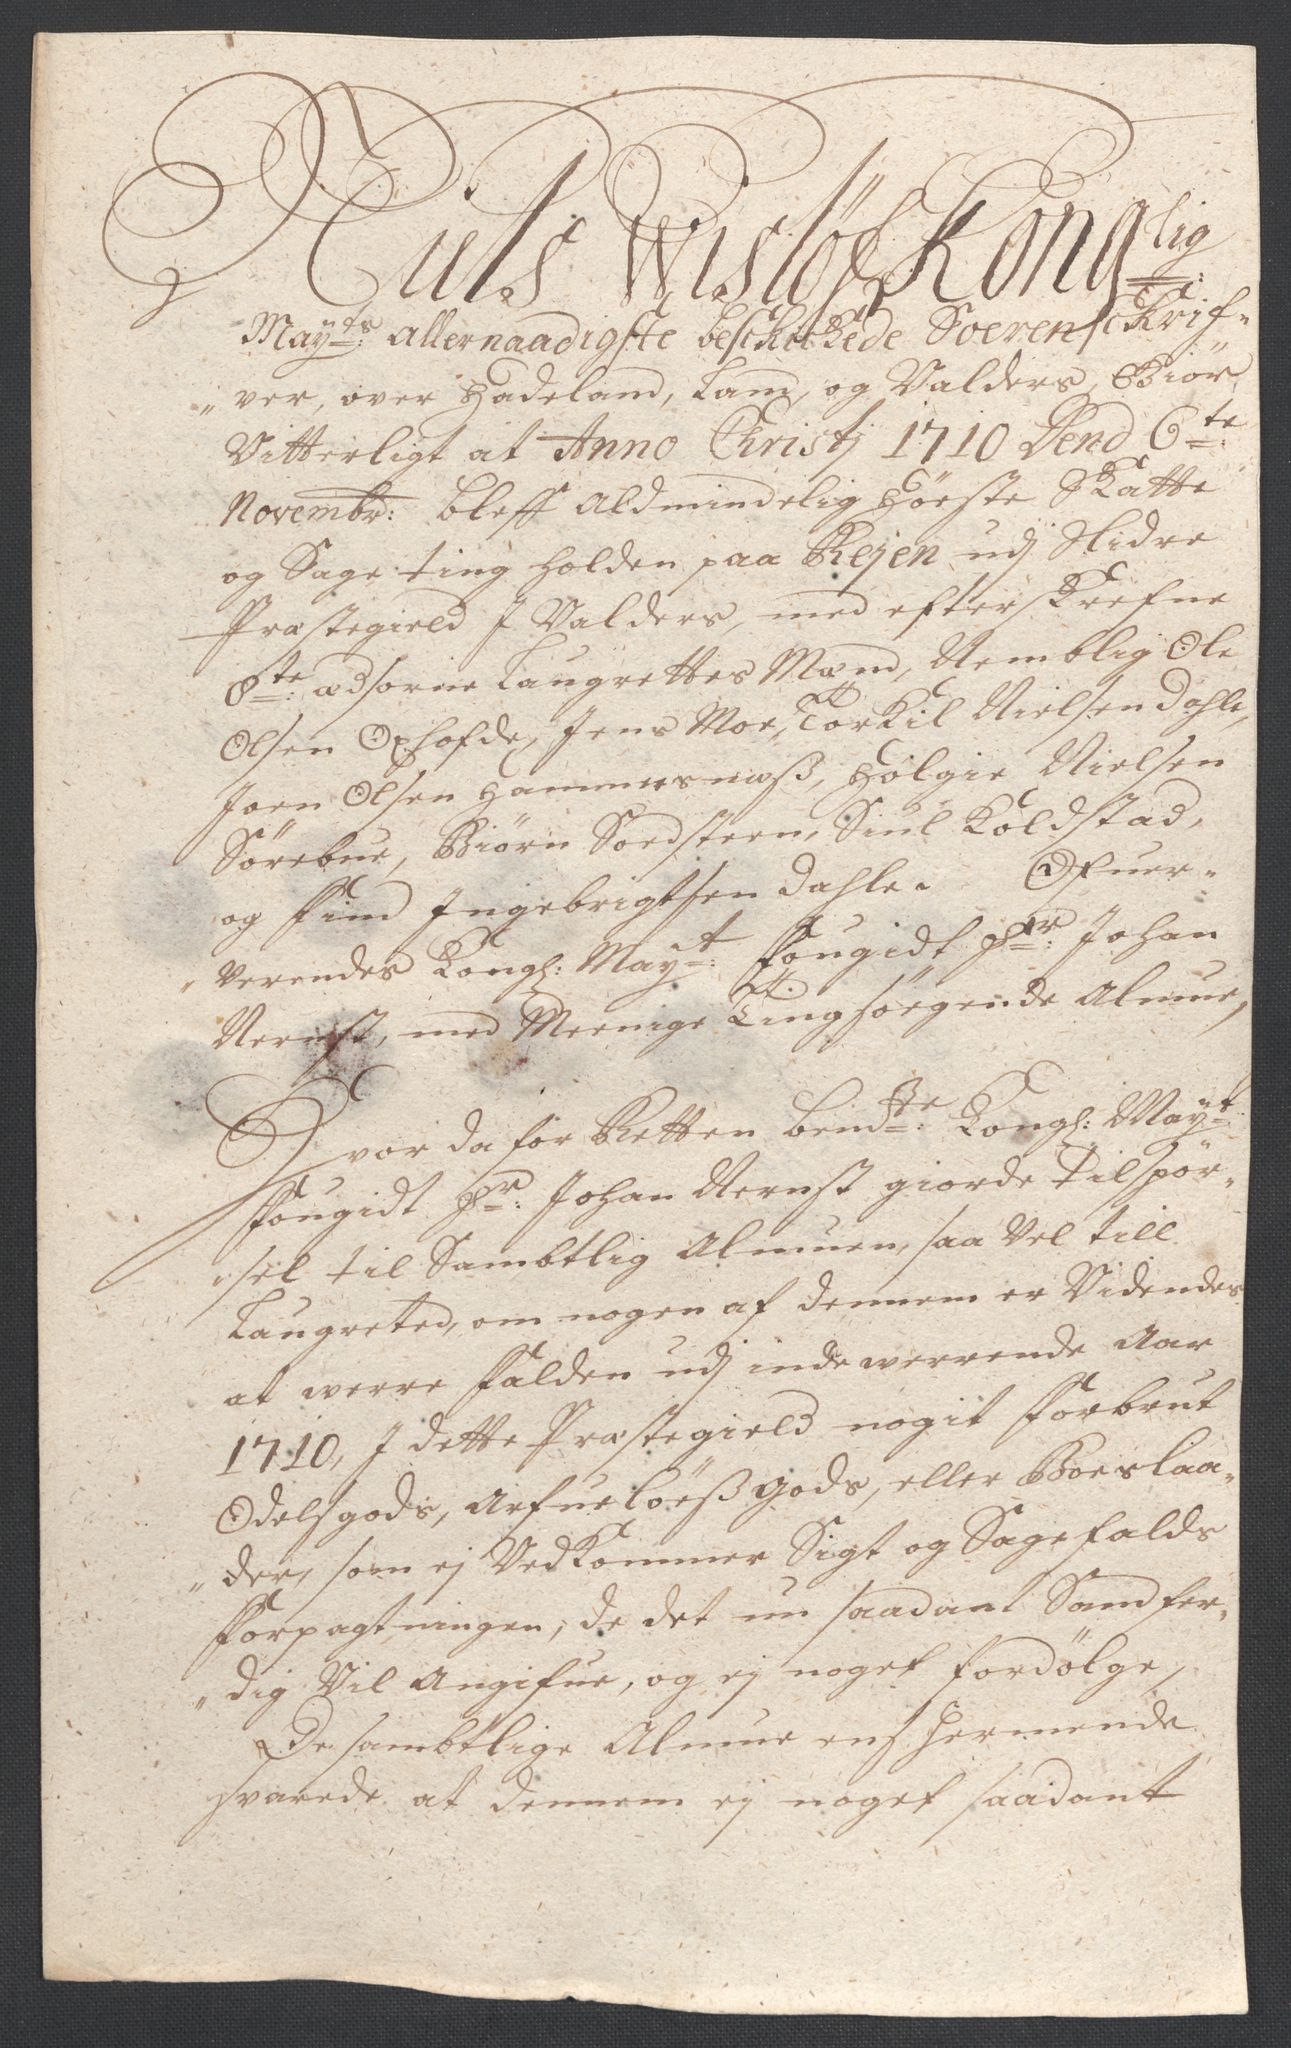 Nils Wisløf Konglig:
May:ds allernaadigste beschickede Soerenschrif-
„ver, over Hadeland, Land, og Valders, Giør
Vitterligt at Anno Christj 1710 Dend 6te:
Novembr: bleff Aldmindelig Høeste Skatte
og Sage ting holden paa Rejen udj Slidre
Præstegield J Valders, med efterskrefne
8te: ædsorne Laugrettes Mænd, Nemblig Ole
Olsen Oxhofde, Jens Moe, Torkil Nielsen Dahle,
Joen Olsen Hammersnæß, Helgie Nielsen
Sørebue, Biørn Sødsteen, Siul Koldstad,
og Find Ingebrigtsen Dahle. Ofuer-
„verendes Kongl: May:t: Fougidt Hr: Johan
Nernst, med Meenige Tingsøgende Almue,
Hvor da for Retten bemte: Kongl: May:t
Fougidt Hr: Johan Nernst giorde tilspør-
„sel til Sambtlig Almuen, saa vel till
Laugreted, om nogen af dennem er Videndes
at werre falden udj indewerrende Aar
1710, J dette Præstegield nogit forbrut
Odelsgods, Arfueløeß gods, eller Boeslaa-
„der, som ej Vedkommer Sigt og Sagefalds
Forpagtningen, de det nu saadant Sandfer-
„dig Vil Angifue, og ej noget fordølge,
De sambtlige Almue eens Hermende
svarede at dennem ej noget saadant